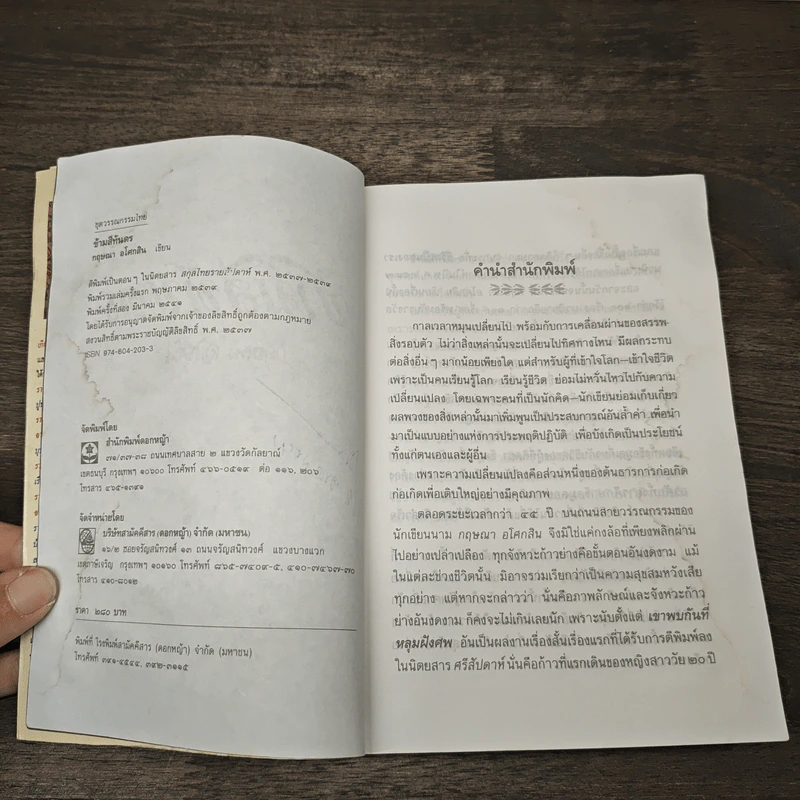 ชุดวรรณกรรมไทย
ข้ามสีทันดร
กฤษณา อโศกสิน เขียน
ตีพิมพ์เป็นตอนๆ ในนิตยสาร สกุลไทยรายสัปดาห์ พ.ศ. ๒๕๓๗-๒๕๓๙
พิมพ์รวมเล่มครั้งแรก พฤษภาคม ๒๕๓๙
พิมพ์ครั้งที่สอง มีนาคม ๒๕๔๑
โดยได้รับการอนุญาตจัดพิมพ์จากเจ้าของลิขสิทธิ์ถูกต้องตามกฎหมาย
สงวนสิทธิ์ตามพระราชบัญญัติลิขสิทธิ์ พ.ศ. ๒๕๓๗
ISBN 974-604-203-3
จัดพิมพ์โดย
สำนักพิมพ์ดอกหญ้า
๗๑/๓๗-๓๘ ถนนเทศบาลสาย ๒ แขวงวัดกัลยาณ์
เขตธนบุรี กรุงเทพฯ ๑๐๖๐๐ โทรศัพท์ ๔๖๖-๐๕๑๙ ต่อ ๑๑๖, ๒๐๖
โทรสาร ๔๖๕-๑๓๙๑
จัดจำหน่ายโดย
บริษัทสามัคคีสาร (ดอกหญ้า) จำกัด (มหาชน)
๑๖/๒ ซอยจรัญสนิทวงศ์ ๑๓ ถนนจรัญสนิทวงศ์ แขวงบางแวก
เขตภาษีเจริญ กรุงเทพฯ ๑๐๑๖๐ โทรศัพท์ ๘๖๕-๗๔๐๙-๕, ๔๑๐-๗๔๖๗-๗๐
โทรสาร ๔๑๐-๘๐๑๒
ราคา ๒๘๐ บาท
พิมพ์ที่ โรงพิมพ์สามัคคีสาร (ดอกหญ้า) จำกัด (มหาชน)
โทรศัพท์ ๓๙๑-๔๕๔๔, ๓๙๒-๓๑๑๕
คำนำสำนักพิมพ์
กาลเวลาหมุนเปลี่ยนไป พร้อมกับการเคลื่อนผ่านของสรรพ-
สิ่งรอบตัว ไม่ว่าสิ่งเหล่านั้นจะเปลี่ยนไปทิศทางไหน มีผลกระทบ
ต่อสิ่งอื่นๆ มากน้อยเพียงใด แต่สำหรับผู้ที่เข้าใจโลก—เข้าใจชีวิต
เพราะเป็นคนเรียนรู้โลก เรียนรู้ชีวิต ย่อมไม่หวั่นไหวไปกับความ
เปลี่ยนแปลง โดยเฉพาะคนที่เป็นนักคิด—นักเขียนย่อมเก็บเกี่ยว
ผลพวงของสิ่งเหล่านั้นมาเพิ่มพูนเป็นประสบการณ์อันล้ำค่า เพื่อนำ
มาเป็นแบบอย่างแห่งการประพฤติปฏิบัติ เพื่อบังเกิดเป็นประโยชน์
ทั้งแก่ตนเองและผู้อื่น
เพราะความเปลี่ยนแปลงคือส่วนหนึ่งของต้นธารการก่อเกิด
ก่อเกิดเพื่อเติบใหญ่อย่างมีคุณภาพ
ตลอดระยะเวลากว่า ๔๕ ปี บนถนนสายวรรณกรรมของ
นักเขียนนาม กฤษณา อโศกสิน จึงมิใช่แค่กงล้อที่เพียงพลิกผ่าน
ไปอย่างเปล่าเปลือง ทุกจังหวะก้าวย่างคือขั้นตอนอันงดงาม แม้
ในแต่ละช่วงชีวิตนั้น มิอาจรวมเรียกว่าเป็นความสุขสมหวังเสีย
ทุกอย่าง แต่หากจะกล่าวว่า นั่นคือภาพลักษณ์และจังหวะก้าว
ย่างอันงดงาม ก็คงจะไม่เกินเลยนัก เพราะนับตั้งแต่ เขาพบกันที่
หลุมฝังศพ อันเป็นผลงานเรื่องสั้นเรื่องแรกที่ได้รับการตีพิมพ์ลง
ในนิตยสาร ศรีสัปดาห์ นั่นคือก้าวที่แรกเดินของหญิงสาววัย ๒๐ ปี